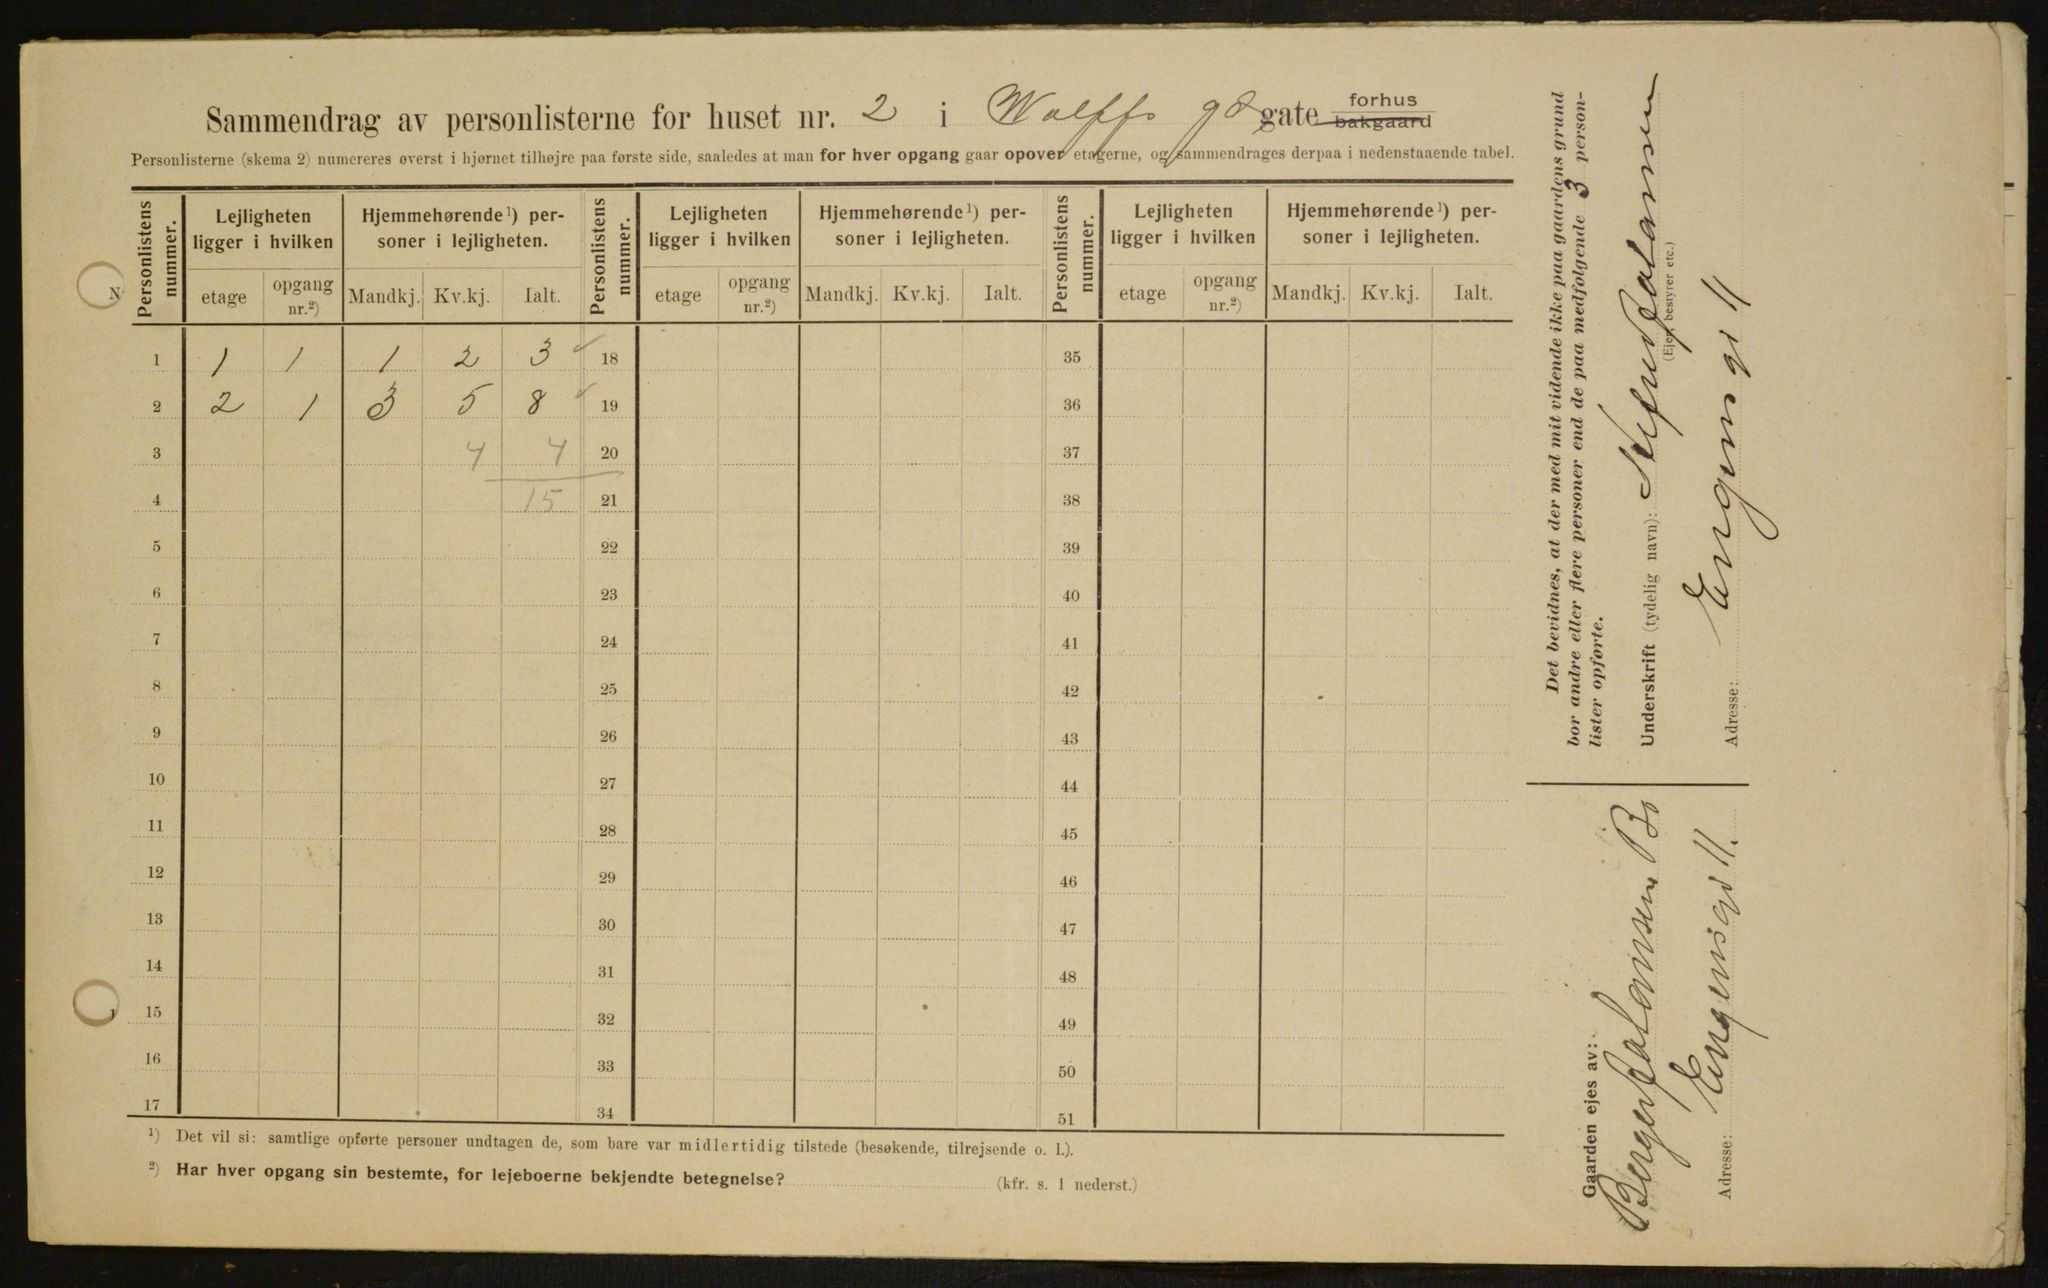 Sammendrag av personlisterne for huset nr. 2 i Wolffs gd gate forhus bakgaard
Personlisterne (skema 2) numereres øverst i hjørnet tilhøjre paa første side, saaledes at man for hver opgang gaar opover etagerne, og sammendrages derpaa i nedenstaaende tabel.
Personlistens nummer. Lejligheten ligger i hvilken Hjemmehørende ¹) personer i lejligheten. Personlistens nummer. Lejligheten ligger i hvilken Hjemmehørende ¹) personer i lejligheten. Personlistens nummer. Lejligheten ligger i hvilken Hjemmehørende ¹) personer i lejligheten.
etage opgang nr.²) Mandkj. Kv.kj. Ialt. etage opgang nr.²) Mandkj. Kv.kj. Ialt. etage opgang nr.²) Mandkj. Kv.kj. Ialt.
1 1 1 1 2 3 ✓ 18 35
2 2 1 3 5 8 ✓ 19 36
3 4 4 20 37
4 15 21 38
5 22 39
6 23 40
7 24 41
8 25 42
9 26 43
10 27 44
11 28 45
12 29 46
13 30 47
14 31 48
15 32 49
16 33 50
17 34 51
¹) Det vil si: samtlige opførte personer undtagen de, som bare var midlertidig tilstede (besøkende, tilrejsende o. l.).
²) Har hver opgang sin bestemte, for lejeboerne bekjendte betegnelse? (kfr. s. 1 nederst.)
Det bevidnes, at der med mit vidende ikke paa gaardens grund
bor andre eller flere personer end de paa medfølgende 3 person-
lister opførte.
Underskrift (tydelig navn):
(Ejer, bestyrer etc.)
Adresse: Engens gd 11
Gaarden ejes av:
Adresse: Engens gd 11.